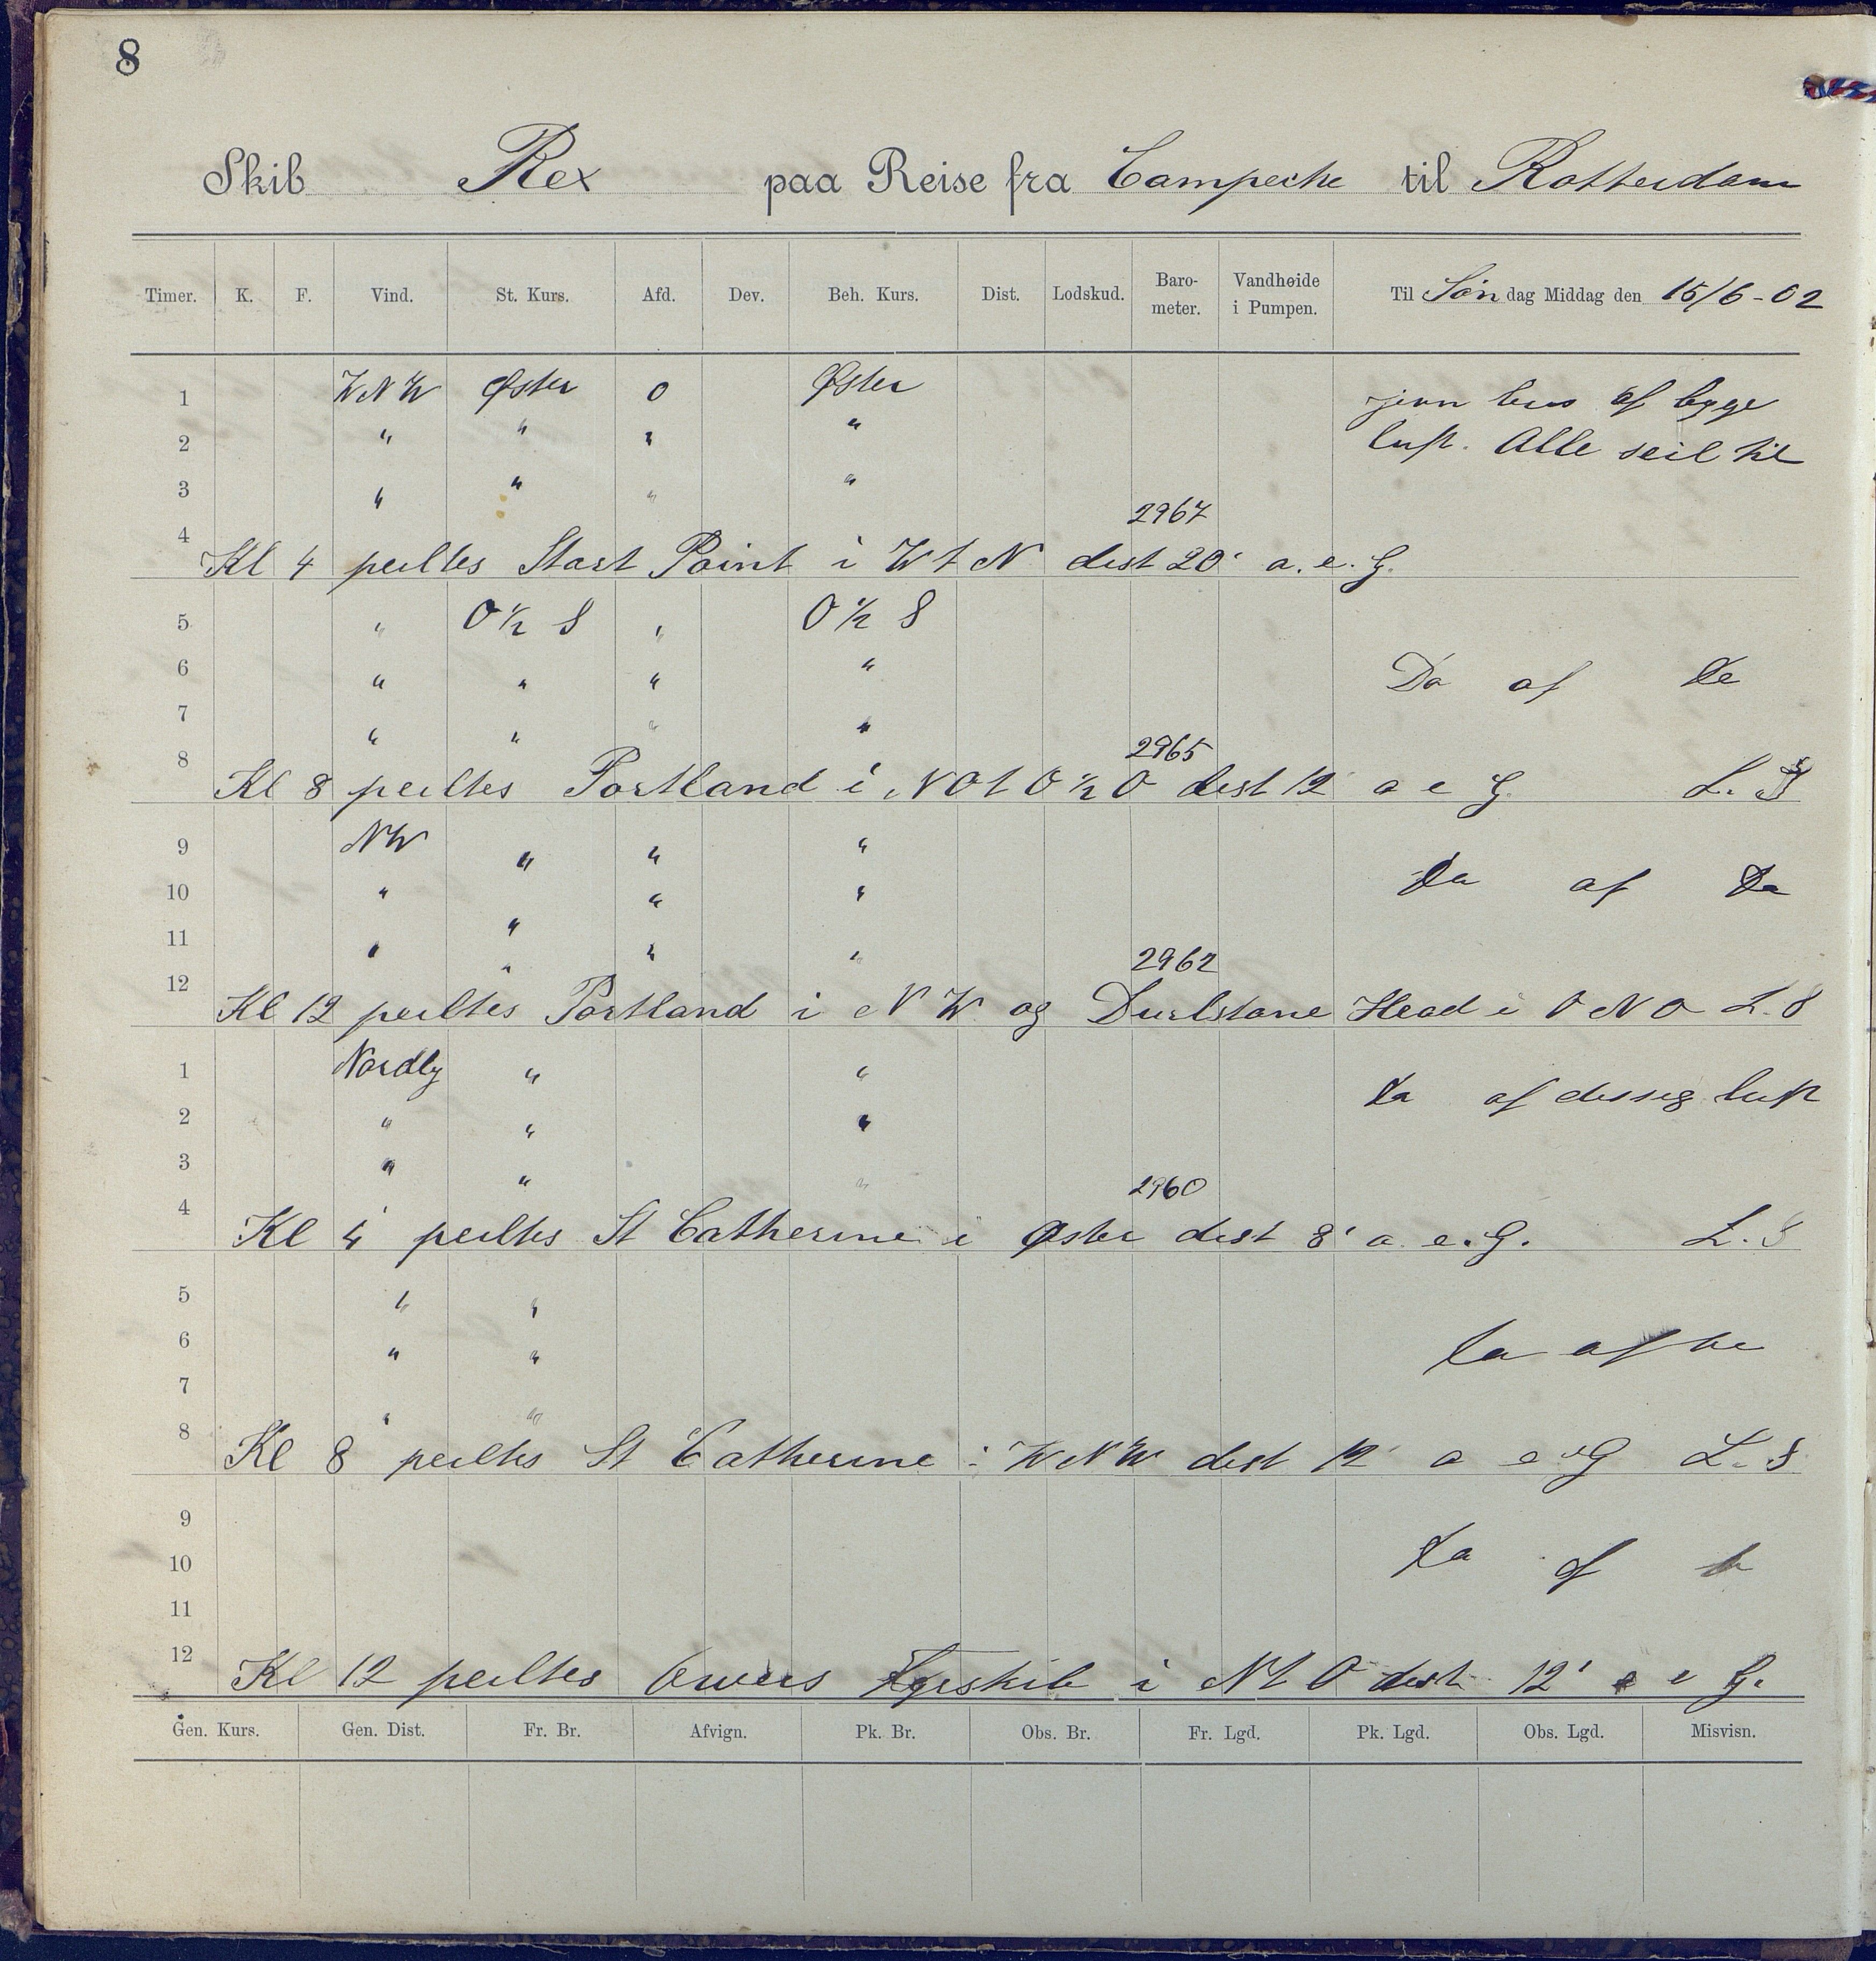 8
Skib Rex paa Reise fra Campeche til Rotterdam
Timer. K. F. Vind. St. Kurs. Afd. Dev. Beh. Kurs. Dist. Lodskud. Baro-meter. Vandhøide i Pumpen. Til Søndag Middag den 15/6-02
1 WNW Øster 0 Øster jevn bris af byge
2 " " " " luft. Alle seil til
3 " " " "
2967
4 Kl 4 peiltes Start Point i WtN dist 20' a. e. G.
5 " O½ S " O½ S
6 " " " " Da af De
7 " " " "
2965
8 Kl 8 peiltes Portland i NOtO½O dist 12' a e G. L. S
9 NW " " "
10 " " " " Da af Da
11 " " " "
2962
12 Kl 12 peiltes Portland i NW og Durlstone Head i ONO L. S
1 Nordly " " Da af dissig luft
2 " " "
3 " " "
2960
4 Kl 4 peiltes St Catherine i Øster dist 8' a. e. G. L. S
5 " "
6 " " Da af
7 " "
8 Kl 8 peiltes St Catherine i WNW dist 12' a e G L. S
9
10 Da af
11
12 Kl 12 peiltes Owers Fyrskib i NtO dist 12' e G.
Gen. Kurs. Gen. Dist. Fr. Br. Afvign. Pk. Br. Obs. Br. Fr. Lgd. Pk. Lgd. Obs. Lgd. Misvisn.